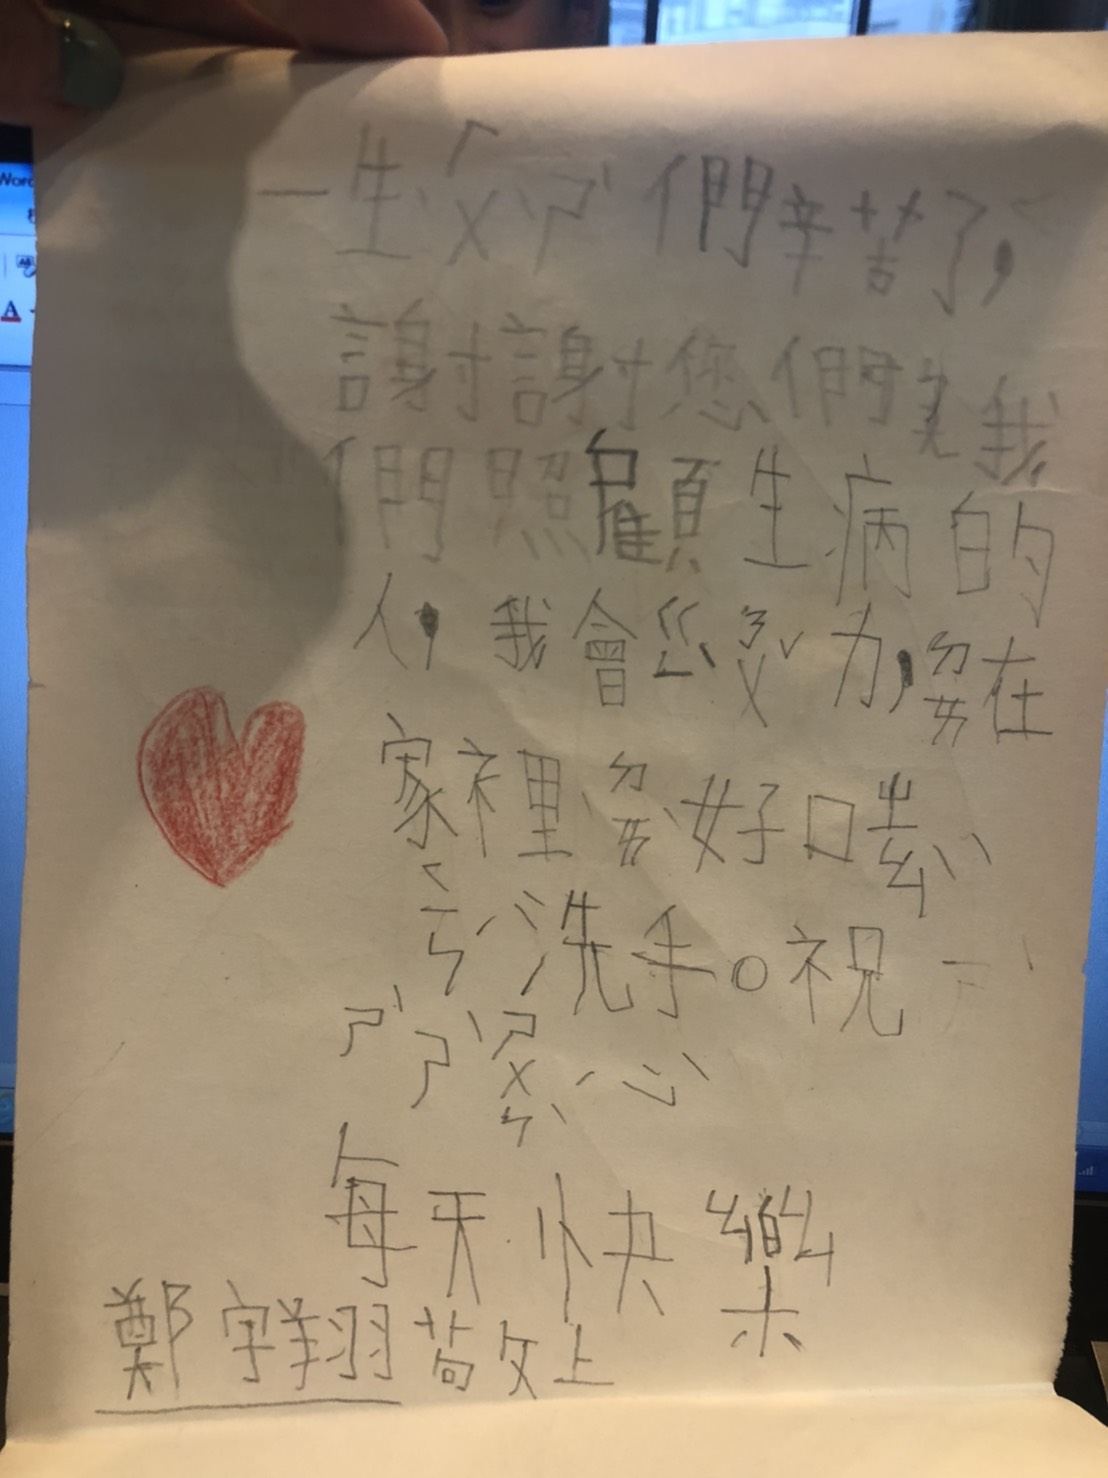 Word
A
一生ㄏㄨˋㄕˋ們辛苦了,
謝謝您們我
們照顧生病的
人,我會ㄋㄨˇ力,ㄉㄞ在
家裡ㄉㄞˋ好口ㄓㄠˋ
ㄑㄧㄣˊ洗手。祝
ㄕˋㄕˋㄕㄨㄣˋ心
每天快樂
鄭宇翔敬上